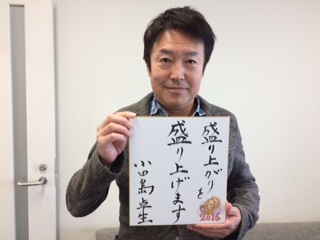 盛り上がりを
盛り上げます
小田島卓生
2016